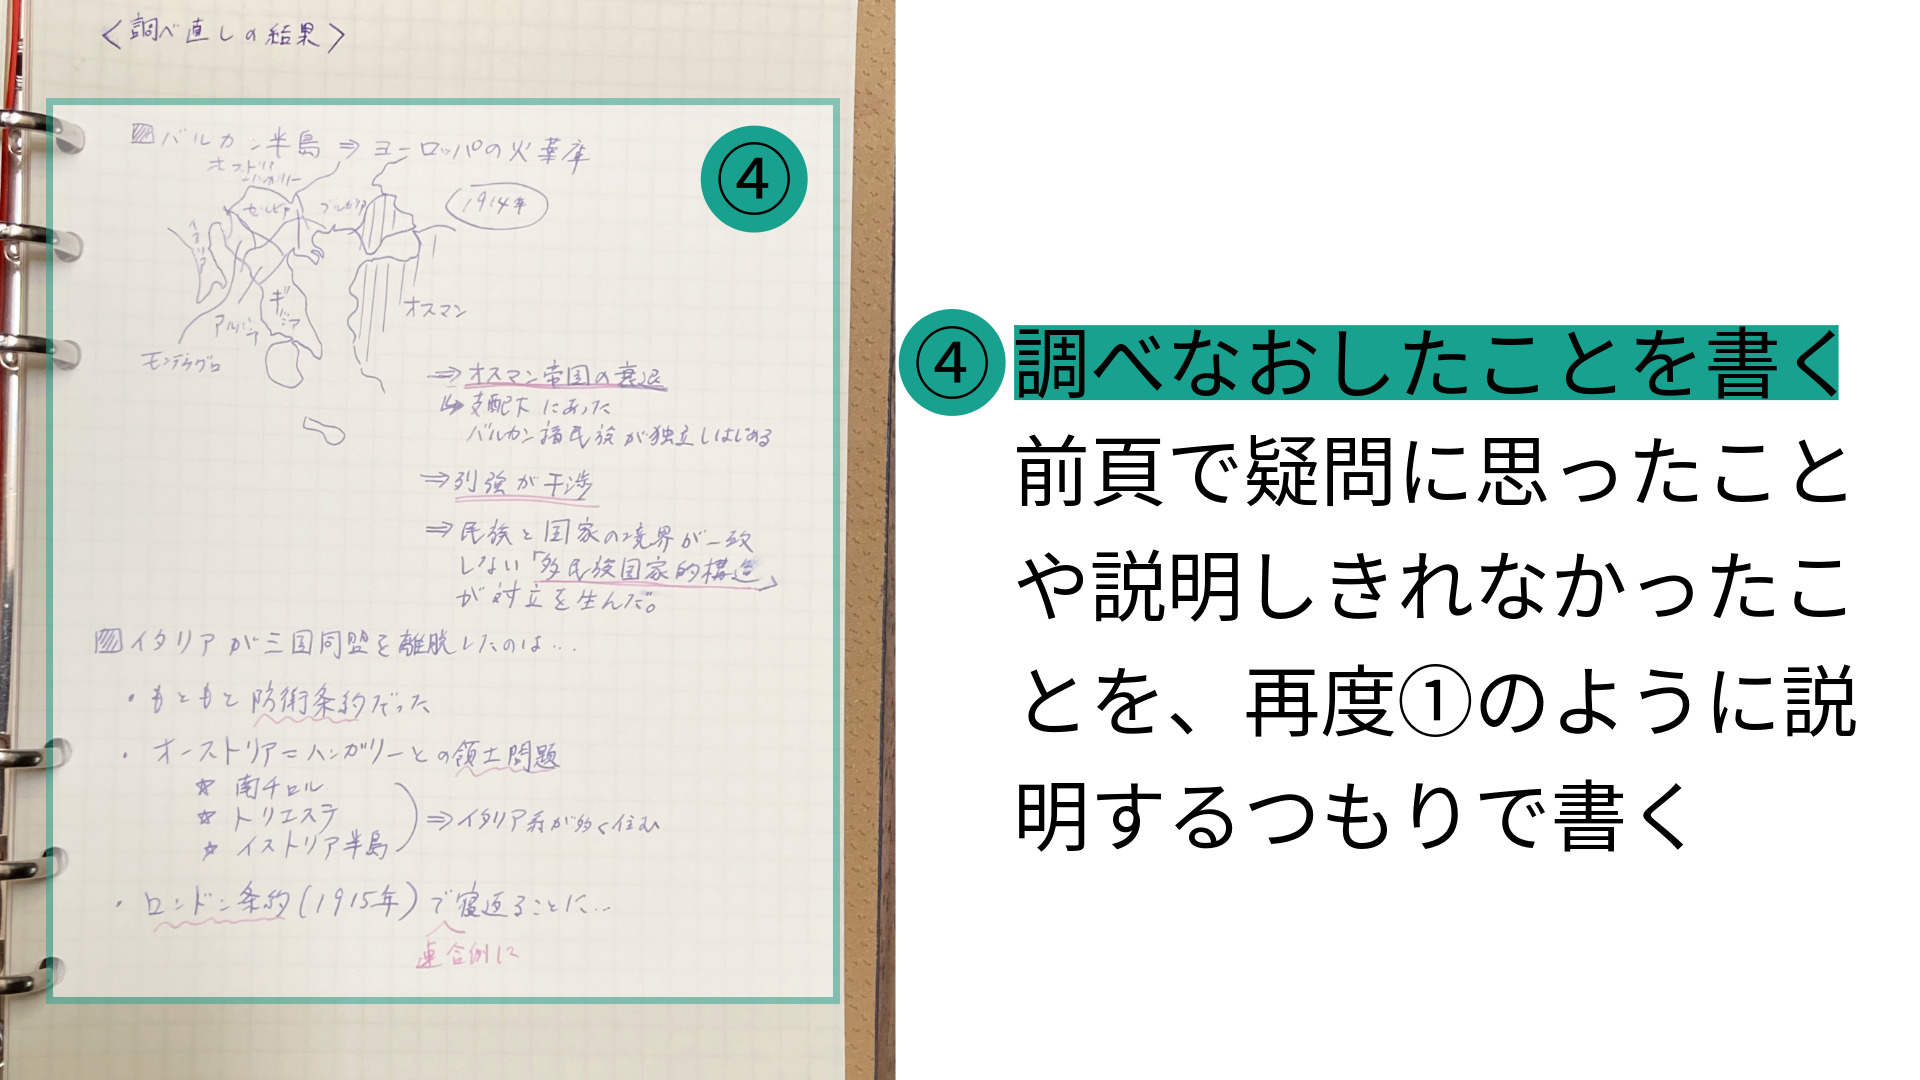 <調べ直しの結果>
バルカン半島 ⇒ ヨーロッパの火薬庫
オーストリア
=ハンガリー
セルビア
ブルガリア
1914年
イタリア
ギリシア
アルバニア
オスマン
モンテネグロ
⇒オスマン帝国の衰退
↳支配下にあった
バルカン諸民族が独立しはじめる
⇒列強が干渉
⇒民族と国家の境界が一致
しない「多民族国家的構造」
が対立を生んだ。
イタリアが三国同盟を離脱したのは…
・もともと防衛条約だった
・オーストリア=ハンガリーとの領土問題
☆ 南チロル
☆ トリエステ
☆ イストリア半島
⇒イタリア系が多く住む
・ロンドン条約(1915年)で寝返ることに…
連合側に
④
④ 調べなおしたことを書く
前頁で疑問に思ったこと
や説明しきれなかったこ
とを、再度①のように説
明するつもりで書く